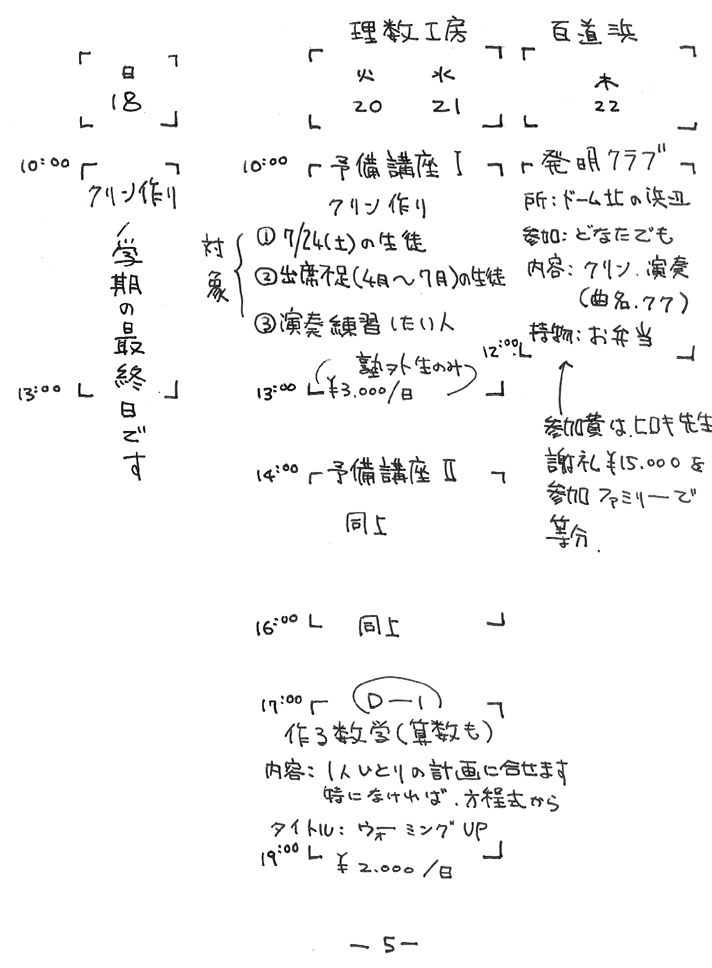 理数工房
百道浜
日
18
火 水
20 21
木
22
10:00
クリン作り
1学期の最終日です
13:00
10:00 予備講座 I
クリン作り
対象
① 7/24(土)の生徒
② 出席不足(4月〜7月)の生徒
③ 演奏練習したい人
(塾ヲト生のみ)
13:00 ¥3.000/日
14:00 予備講座 II
同上
16:00 同上
17:00 D-1
作る数学(算数も)
内容: 1人ひとりの計画に合せます
特になければ、方程式から
タイトル: ウォーミングUP
19:00 ¥2.000/日
発明クラブ
所:ドーム北の浜辺
参加:どなたでも
内容:クリン.演奏
(曲名.77)
持物:お弁当
12:00
参加費は、ヒロキ先生
謝礼¥15.000を
参加ファミリーで
等分.
-5-